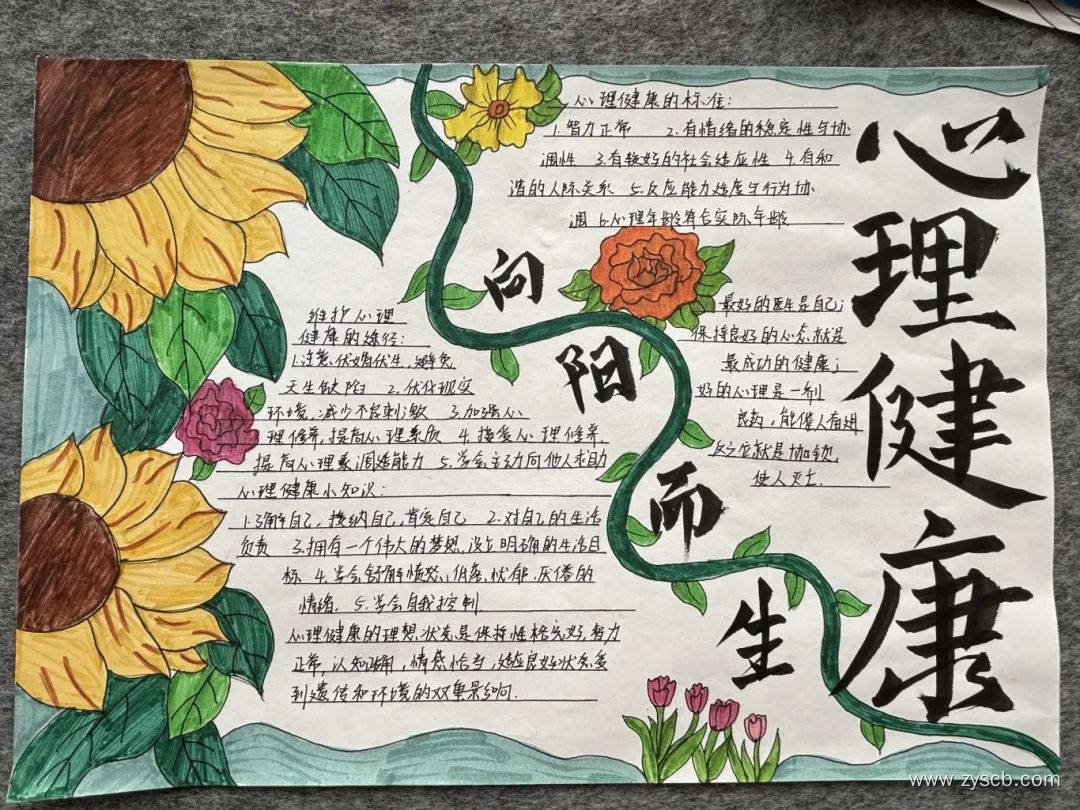 心理健康
向阳而生
心理健康的标准:
1.智力正常 2.有情绪的稳定性与协
调性 3.有较好的社会适应性 4.有和
谐的人际关系 5.反应能力适度与行为协
调 6.心理年龄符合实际年龄
最好的医生是自己;
保持良好的心态就是
最成功的健康;
好的心理是一剂
良药,能催人奋进
就是枷锁,
使人
维护心理
健康的途径:
1.注意优婚优生,避免
天生缺陷 2.优化现实
环境,减少不良刺激 3.加强心
理修养,提高心理素质 4.接受心理修养,
提高心理素调适能力 5.学会主动向他人求助
心理健康小知识:
1.了解自己,接纳自己,肯定自己 2.对自己的生活
负责 3.拥有一个伟大的梦想,设立明确的生活目
标 4.学会舒解愤怒、伤悲、忧郁、厌倦的
情绪. 5.学会自我控制
心理健康的理想状态是保持性格完好,智力
正常,认知正确,情感恰当,适应良好状态,受
到遗传和环境的双重影响.
www.zyscb.com